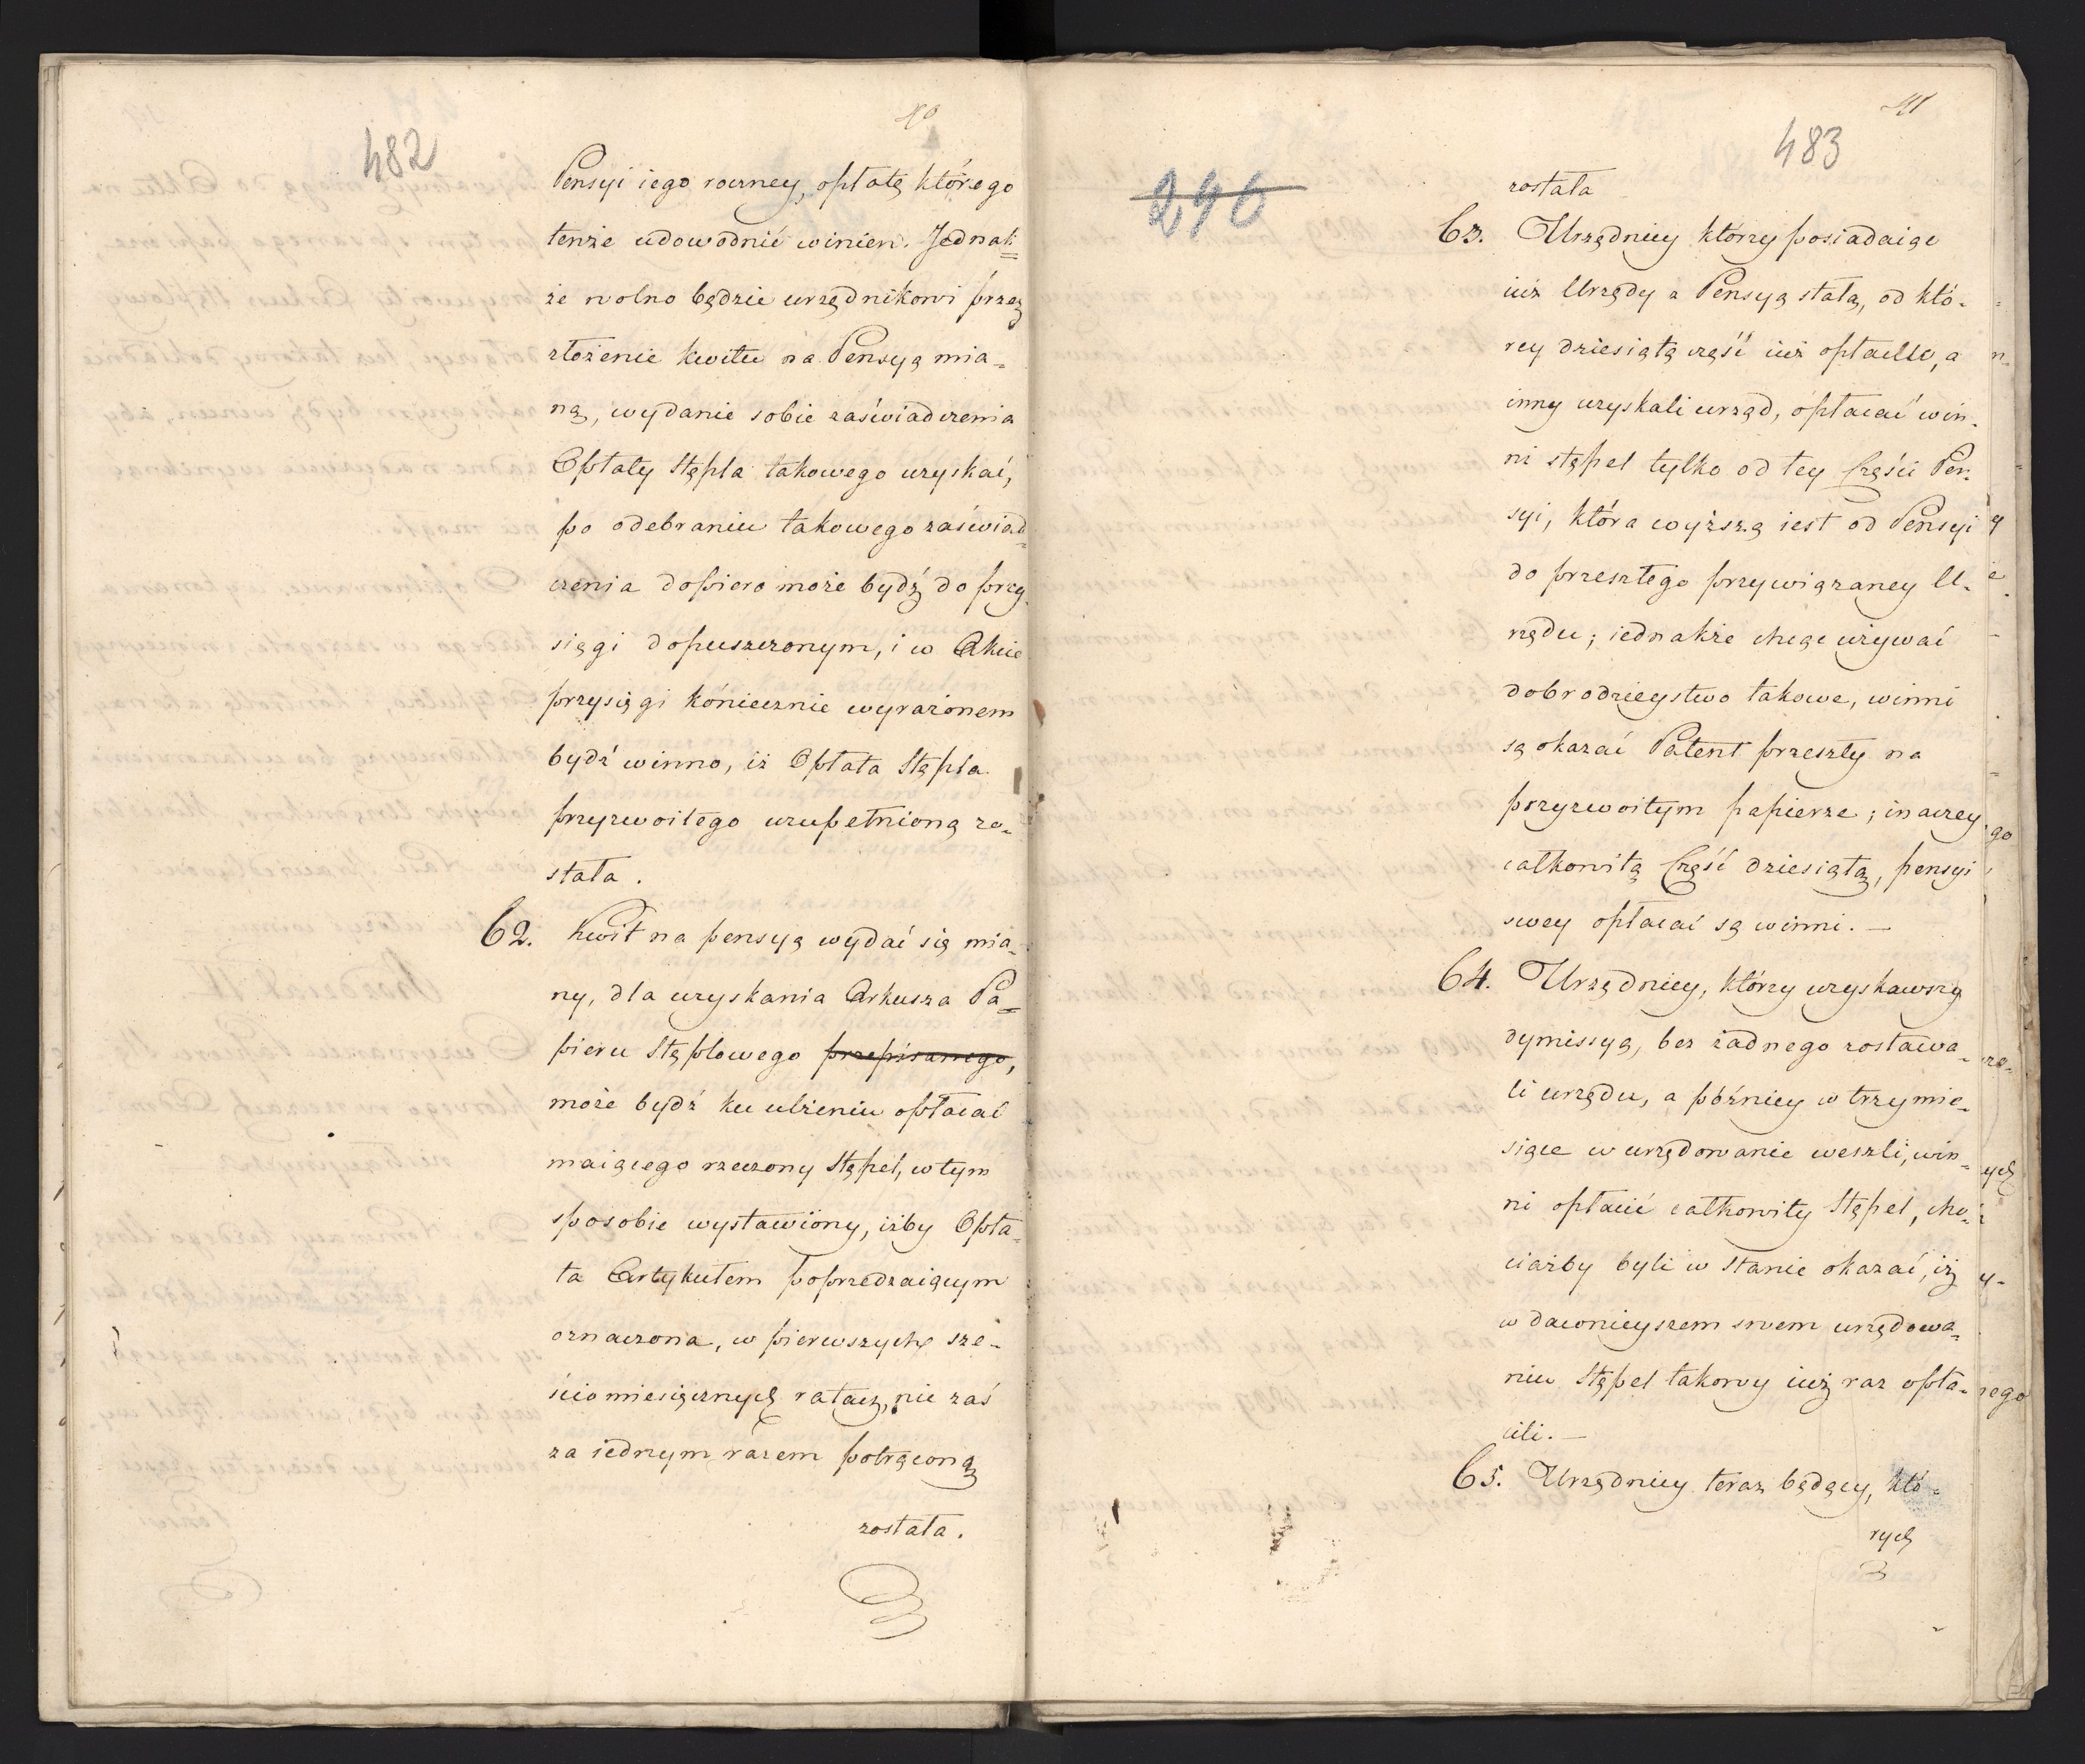 40
482
Pensyi iego roczney, opłatę którego
tenże udowodnić winien. Jednak=
że wolno będzie urzędnikowi przez
złożenie kwitu na Pensyą mia=
ną, wydanie sobie zaświadczenia
Opłaty Stępla takowego uzyskać,
po odebraniu takowego zaświad=
czenia dopiero może bydź do przy=
sięgi dopuszczonym, i w Akcie
przysięgi koniecznie wyrażonem
bydź winno, iż Opłata Stępla
przyzwoitego uzupełnioną zo=
stała.
62. Kwit na pensyą wydać się mia=
ny, dla uzyskania Arkusza Pa=
pieru Stęplowego przepisanego,
może bydź ku ulżeniu opłacać
maiącego rzeczony Stępel, w tym
sposobie wystawiony, iżby Opła=
ta Artykułem poprzedzaiącym
oznaczona, w pierwszych sze=
ściomiesięcznych ratach, nie zaś
za iednym razem potrąconą
została.
41
483
246
została
63. Urzędnicy którzy posiadaiąc
iuż Urzędy z Pensyą stałą, od któ=
rey dziesiątą część iuż opłacili, a
inny uzyskali urząd, opłacać win=
ni stępel tylko od tey Części Pen=
syi, która wyższą iest od Pensyi
do przeszłego przywiązaney U=
rzędu; iednakże chcąc używać
dobrodzieystwo takowe, winni
są okazać Patent przeszły na
przyzwoitym papierze; inaczey
całkowitą Część dziesiątą, pensyi
swey opłacać są winni. —
64. Urzędnicy, którzy uzyskawszy
dymissyą, bez żadnego zostawa=
li urzędu, a póżniey w trzy mie=
siące w urzędowanie weszli, win=
ni opłacić całkowity Stępel, cho=
ciażby byli w stanie okazać, iż
w dawnieyszem swem urzędowa=
niu Stępel takowy iuż raz opła=
cili. —
65. Urzędnicy teraz będący, któ=
rych